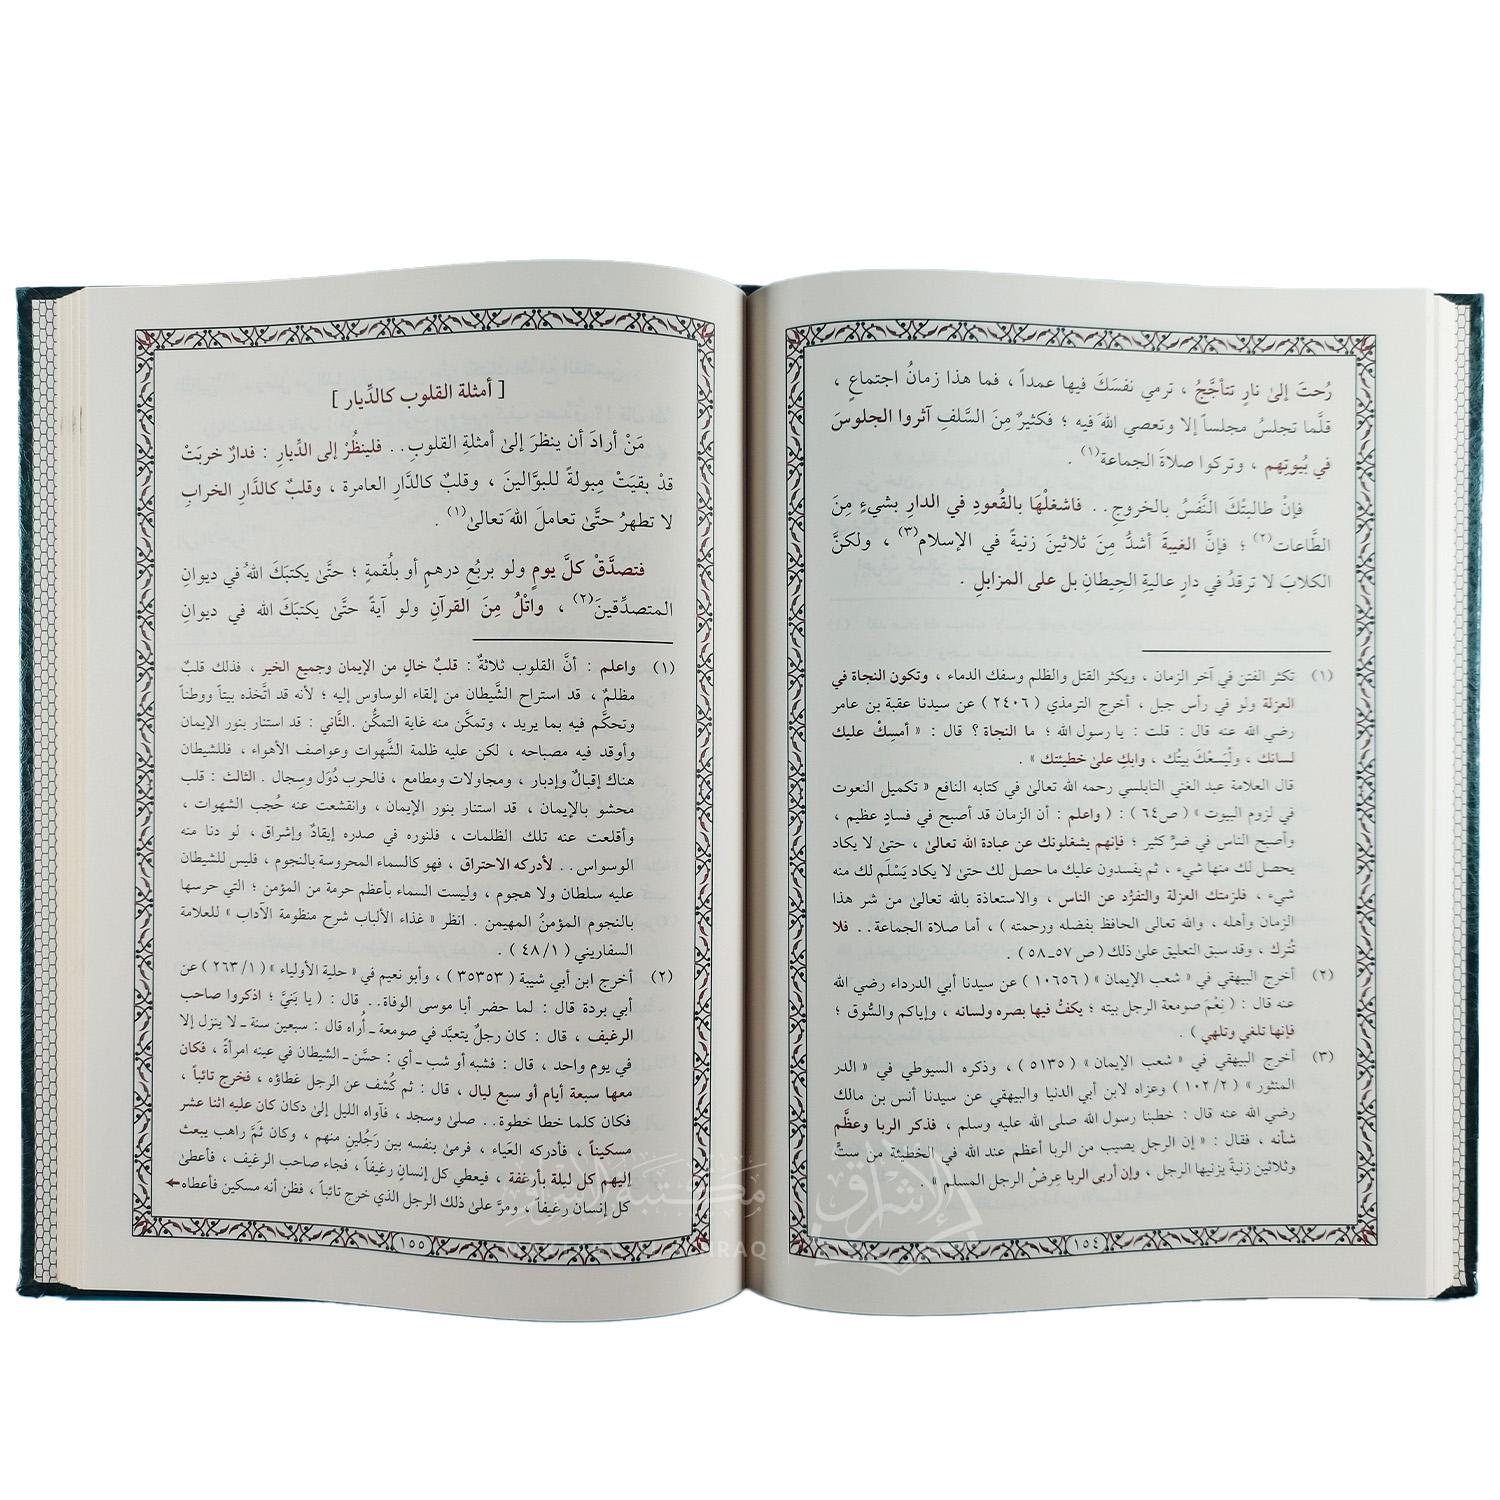 رُحتَ إلىٰ نارٍ تتأجَّجُ ، ترمي نفسَكَ فيها عمداً ، فما هذا زمانُ اجتماعٍ ،
قلَّما تجلسُ مجلساً إلا وتعصي اللهَ فيه ؛ فكثيرٌ مِنَ السَّلفِ آثروا الجلوسَ
في بُيوتِهم ، وتركوا صلاةَ الجماعة(١) .
فإنْ طالبتْكَ النَّفسُ بالخروجِ.. فاشغلْهَا بالقُعودِ في الدارِ بشيءٍ مِنَ
الطَّاعات(٢) ؛ فإنَّ الغيبةَ أشدُّ مِنَ ثلاثينَ زنيةً في الإسلام(٣) ، ولكنَّ
الكلابَ لا ترقدُ في دارٍ عاليةِ الحِيطانِ بل على المزابلِ .
(١) تكثر الفتن في آخر الزمان ، ويكثر القتل والظلم وسفك الدماء ، وتكون النجاة في
العزلة ولو في رأس جبل ، أخرج الترمذي ( ٢٤٠٦ ) عن سيدنا عقبة بن عامر
رضي الله عنه قال : قلت : يا رسول الله ؛ ما النجاة ؟ قال : « أمسِكْ عليك
لسانك ، ولْيَسعْكَ بيتُك ، وابكِ علىٰ خطيئتك » .
قال العلامة عبد الغني النابلسي رحمه الله تعالىٰ في كتابه النافع « تكميل النعوت
في لزوم البيوت » ( ص٦٤ ) : ( واعلم : أن الزمان قد أصبح في فسادٍ عظيم ،
وأصبح الناس في ضرٍّ كثير ؛ فإنهم يشغلونك عن عبادة الله تعالىٰ ، حتىٰ لا يكاد
يحصل لك منها شيء ، ثم يفسدون عليك ما حصل لك حتىٰ لا يكاد يَسْلَم لك منه
شيء ، فلزمتك العزلة والتفرُّد عن الناس ، والاستعاذة بالله تعالىٰ من شر هذا
الزمان وأهله ، والله تعالى الحافظ بفضله ورحمته ) ، أما صلاة الجماعة.. فلا
تُترك ، وقد سبق التعليق علىٰ ذلك ( ص ٥٧ـ٥٨ ) .
(٢) أخرج البيهقي في « شعب الإيمان » ( ١٠٦٥٦ ) عن سيدنا أبي الدرداء رضي الله
عنه قال : ( نِعْمَ صومعة الرجل بيته ؛ يكفُّ فيها بصره ولسانه ، وإياكم والسُّوق ؛
فإنها تلغي وتلهي ) .
(٣) أخرج البيهقي في « شعب الإيمان » ( ٥١٣٥ ) ، وذكره السيوطي في « الدر
المنثور » ( ١٠٢/٢ ) وعزاه لابن أبي الدنيا والبيهقي عن سيدنا أنس بن مالك
رضي الله عنه قال : خطبنا رسول الله صلى الله عليه وسلم ، فذكر الربا وعظَّم
شأنه ، فقال : « إن الرجل يصيب من الربا أعظم عند الله في الخطيئة من ستٍّ
وثلاثين زنيةً يزنيها الرجل ، وإن أربى الربا عِرضُ الرجل المسلم » .
١٥٤
[ أمثلة القلوب كالدِّيار ]
مَنْ أرادَ أن ينظرَ إلىٰ أمثلةِ القلوبِ.. فلينظُرْ إلى الدِّيارِ : فدارٌ خربَتْ
قدْ بقيَتْ مِبولةً للبوَّالينَ ، وقلبٌ كالدَّارِ العامرة ، وقلبٌ كالدَّارِ الخرابِ
لا تطهرُ حتَّىٰ تعاملَ اللهَ تعالىٰ(١) .
فتصدَّقْ كلَّ يومٍ ولو بربُعِ درهمٍ أو بلُقمةٍ ؛ حتَّىٰ يكتبَكَ اللهُ في ديوانِ
المتصدِّقينَ(٢) ، واتْلُ مِنَ القرآنِ ولو آيةً حتَّىٰ يكتبَكَ الله في ديوانِ
(١) واعلم : أنَّ القلوب ثلاثةٌ : قلبٌ خالٍ من الإيمان وجميع الخير ، فذلك قلبٌ
مظلمٌ ، قد استراح الشَّيطان من إلقاء الوساوس إليه ؛ لأنه قد اتَّخذه بيتاً ووطناً
وتحكَّم فيه بما يريد ، وتمكَّن منه غاية التمكُّن .الثَّاني : قد استنار بنور الإيمان
وأوقد فيه مصباحه ، لكن عليه ظلمة الشَّهوات وعواصف الأهواء ، فللشيطان
هناك إقبالٌ وإدبار ، ومجاولات ومطامع ، فالحرب دُوَل وسِجال . الثالث : قلب
محشو بالإيمان ، قد استنار بنور الإيمان ، وانقشعت عنه حُجب الشهوات ،
وأقلعت عنه تلك الظلمات ، فلنوره في صدره إيقادٌ وإشراق ، لو دنا منه
الوسواس.. لأدركه الاحتراق ، فهو كالسماء المحروسة بالنجوم ، فليس للشيطان
عليه سلطان ولا هجوم ، وليست السماء بأعظم حرمة من المؤمن ؛ التي حرسها
بالنجوم المؤمنُ المهيمن . انظر « غذاء الألباب شرح منظومة الآداب » للعلامة
السفاريني ( ٤٨/١ ) .
(٢) أخرج ابن أبي شيبة ( ٣٥٣٥٣ ) ، وأبو نعيم في « حلية الأولياء » ( ٢٦٣/١ ) عن
أبي بردة قال : لما حضر أبا موسى الوفاة.. قال : ( يا بَنيَّ ؛ اذكروا صاحب
الرغيف ، قال : كان رجلٌ يتعبَّد في صومعة ـ أُراه قال : سبعين سنة ـ لا ينزل إلا
في يوم واحد ، قال : فشبه أو شب ـ أي : حسَّن ـ الشيطان في عينه امرأةً ، فكان
معها سبعة أيام أو سبع ليال ، قال : ثم كُشف عن الرجل غطاؤه ، فخرج تائباً ،
فكان كلما خطا خطوة.. صلىٰ وسجد ، فآواه الليل إلىٰ دكان كان عليه اثنا عشر
مسكيناً ، فأدركه العَياء ، فرمىٰ بنفسه بين رَجُلين منهم ، وكان ثَمَّ راهب يبعث
إليهم كل ليلة بأرغفة ، فيعطي كل إنسانٍ رغيفاً ، فجاء صاحب الرغيف ، فأعطىٰ
كل إنسان رغيفاً ، ومرَّ علىٰ ذلك الرجل الذي خرج تائباً ، فظن أنه مسكين فأعطاه
١٥٥
مكتبة الإشراق
الإشراق